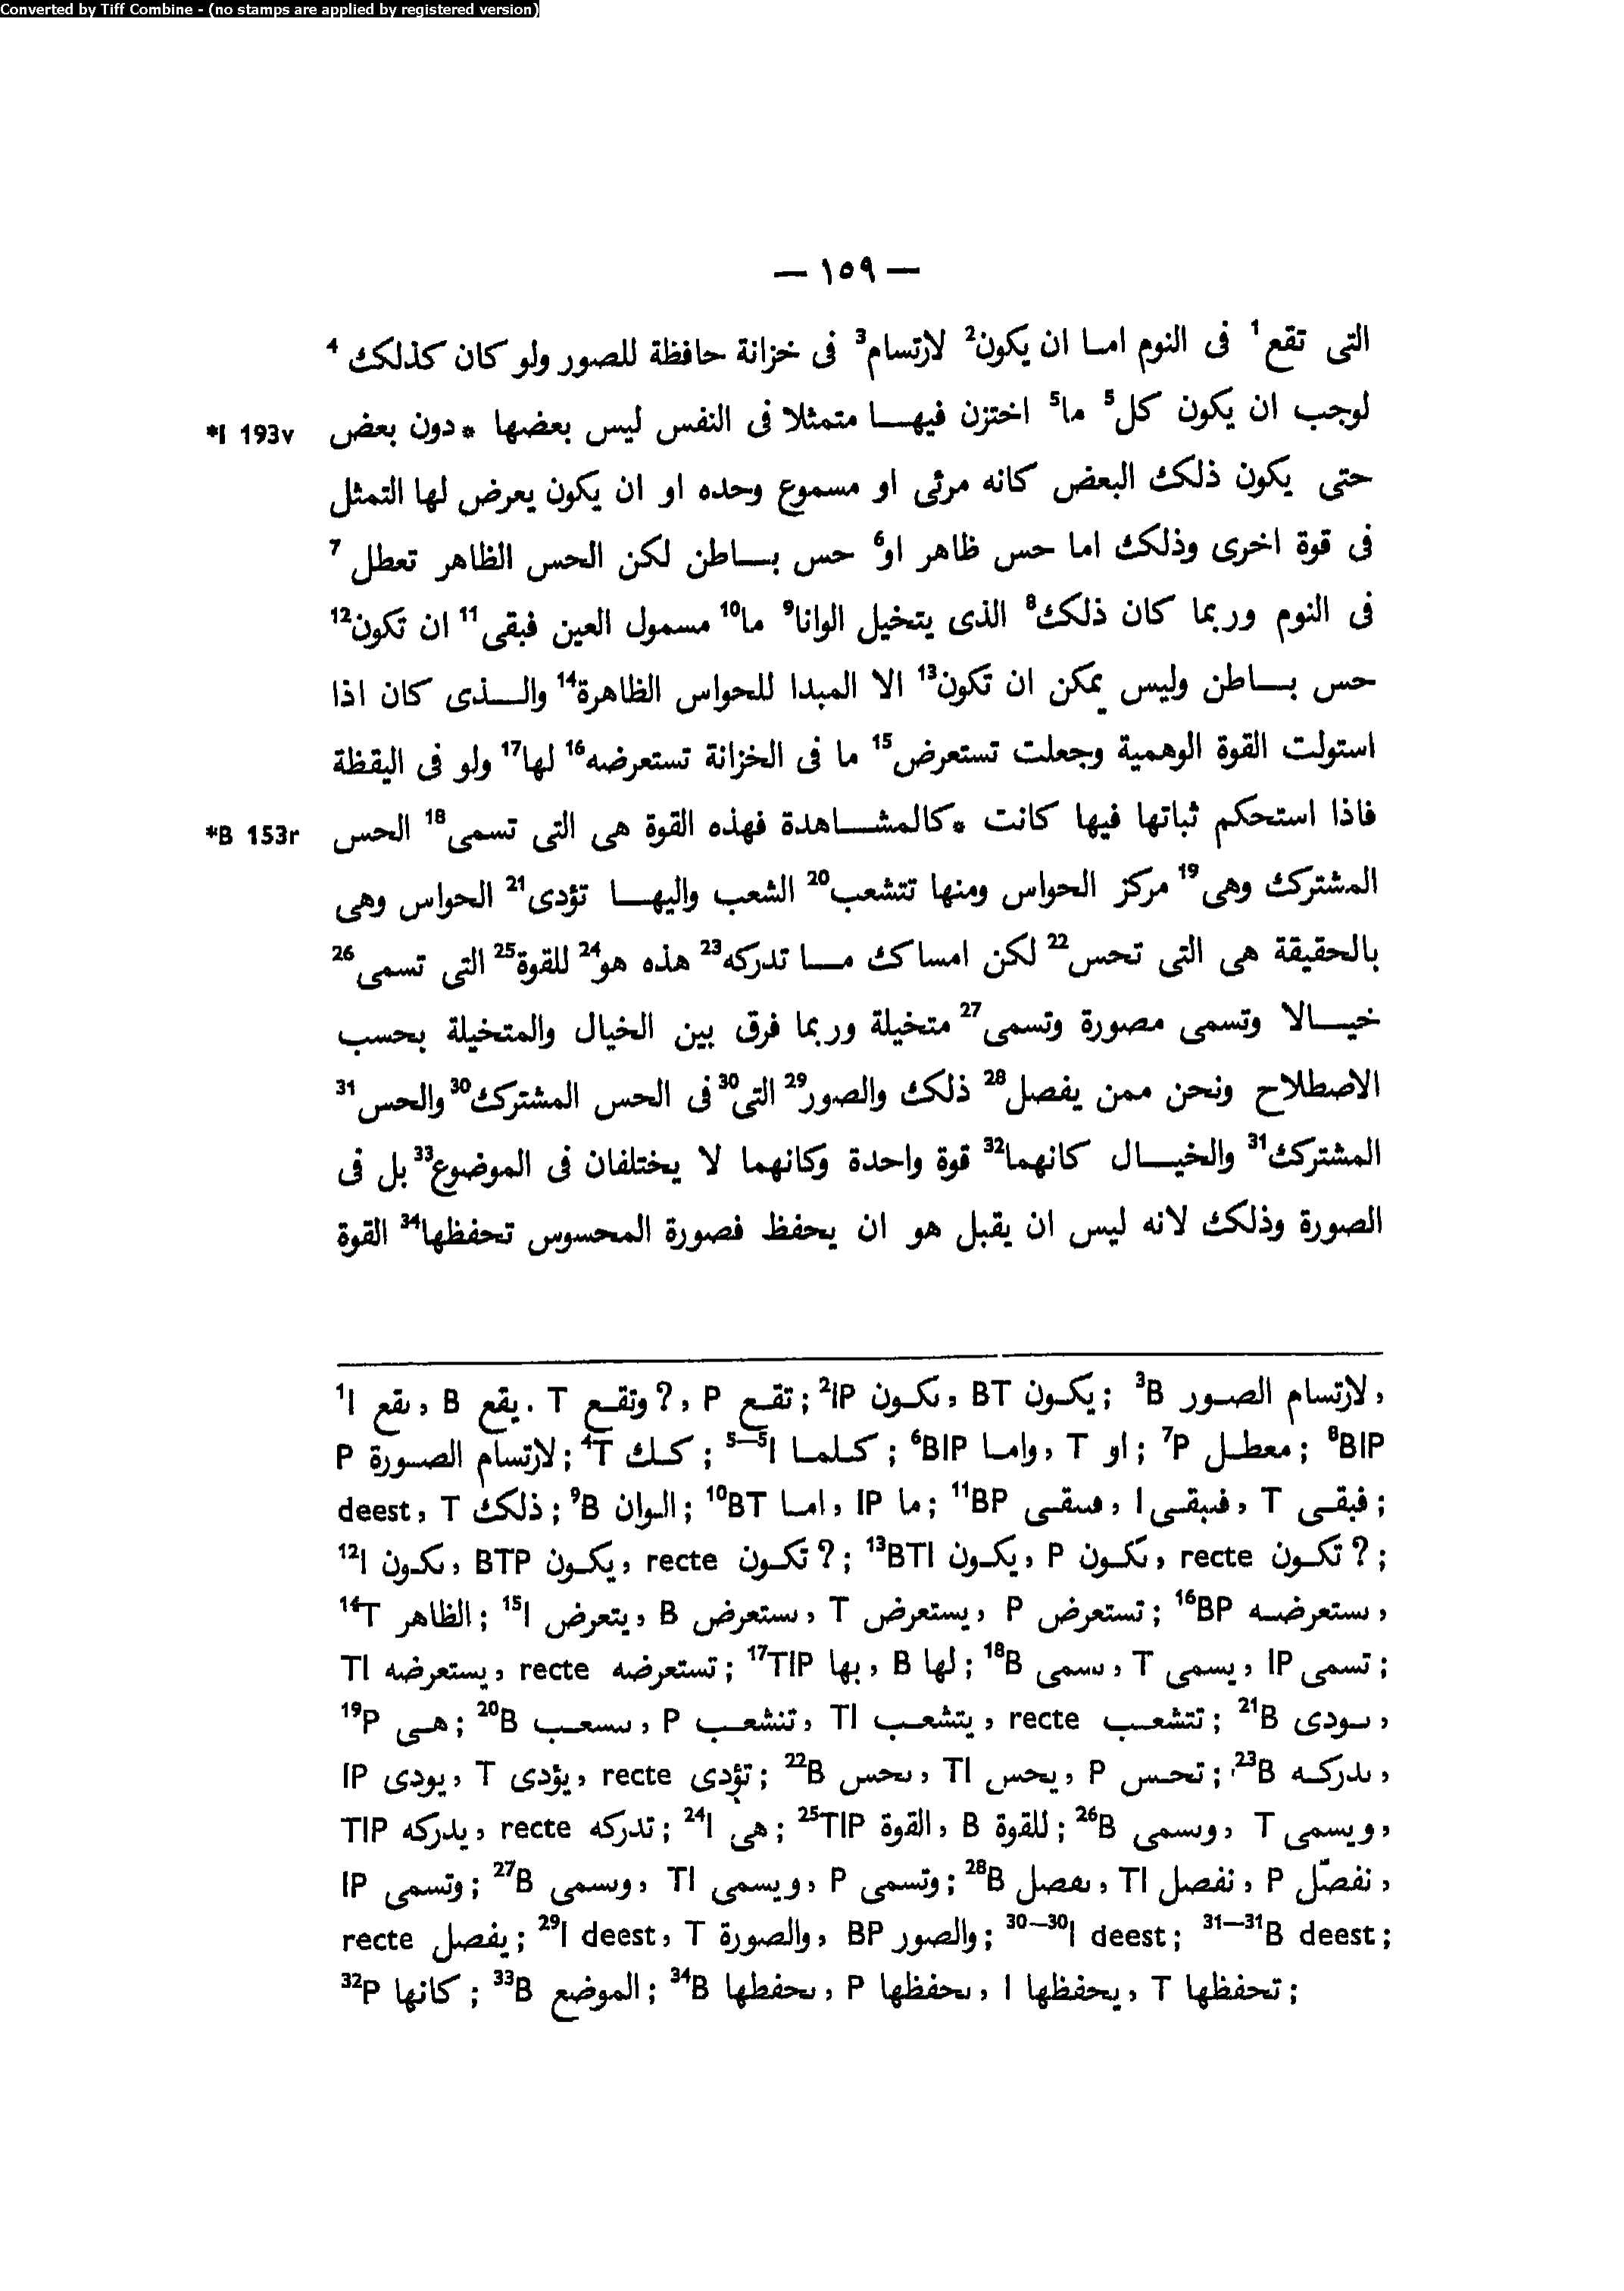 Converted by Tiff Combine - (no stamps are applied by registered version)
— ١٥٩ —
التى تقع1 فى النوم اما ان يكون2 لارتسام3 فى خزانة حافظة للصور ولو كان كذلك4
لوجب ان يكون كل5 ما5 اختزن فيها متمثلا فى النفس ليس بعضها *دون بعض *I 193v
حتى يكون ذلك البعض كانه مرئى او مسموع وحده او ان يكون يعرض لها التمثل
فى قوة اخرى وذلك اما حس ظاهر او6 حس باطن لكن الحس الظاهر تعطل7
فى النوم وربما كان ذلك8 الذى يتخيل الوانا9 ما10 مسمول العين فبقى11 ان تكون12
حس باطن وليس يمكن ان تكون13 الا المبدا للحواس الظاهرة14 والذى كان اذا
استولت القوة الوهمية وجعلت تستعرض15 ما فى الخزانة تستعرضه16 لها17 ولو فى اليقظة
فاذا استحكم ثباتها فيها كانت *كالمشاهدة فهذه القوة هى التى تسمى18 الحس *B 153r
المشترك وهى19 مركز الحواس ومنها تتشعب20 الشعب واليها تؤدى21 الحواس وهى
بالحقيقة هى التى تحس22 لكن امساك ما تدركه23 هذه هو24 للقوة25 التى تسمى26
خيالا وتسمى مصورة وتسمى27 متخيلة وربما فرق بين الخيال والمتخيلة بحسب
الاصطلاح ونحن ممن يفصل28 ذلك والصور29 التى30 فى الحس المشترك30 والحس31
المشترك31 والخيال كانهما32 قوة واحدة وكانهما لا يختلفان فى الموضوع33 بل فى
الصورة وذلك لانه ليس ان يقبل هو ان يحفظ فصورة المحسوس تحفظها34 القوة
1I ىقع, B يقع. T وتقع?, P تقع; 2IP ىكون, BT يكون; 3B لارتسام الصور,
P لارتسام الصورة; 4T كك; 5—5I كلما; 6BIP واما, T او; 7P معطل; 8BIP
deest, T ذلك; 9B الوان; 10BT اما, IP ما; 11BP فىىقى, I فيبقى, T فبقى;
12I ىكون, BTP يكون, recte تكون?; 13BTI يكون, P ىكون, recte تكون?;
14T الظاهر; 15I يتعرض, B ىستعرض, T يستعرض, P تستعرض; 16BP ىستعرضه,
TI يستعرضه, recte تستعرضه; 17TIP بها, B لها; 18B ىسمى, T يسمى, IP تسمى;
19P هى; 20B ىىسعب, P تنشعب, TI يتشعب, recte تتشعب; 21B ىودى,
IP يودى, T يؤدى, recte تؤدى; 22B ىحس, TI يحس, P تحس; 23B ىدركه,
TIP يدركه, recte تدركه; 24I هى; 25TIP القوة, B للقوة; 26B وىسمى, T ويسمى,
IP وتسمى; 27B وىسمى, TI ويسمى, P وتسمى; 28B ىفصل, TI نفصل, P نفصّل,
recte يفصل; 29I deest, T والصورة, BP والصور; 30—30I deest; 31—31B deest;
32P كانها; 33B الموضع; 34B ىحفطها, P ىحفظها, I يحفظها, T تحفظها;